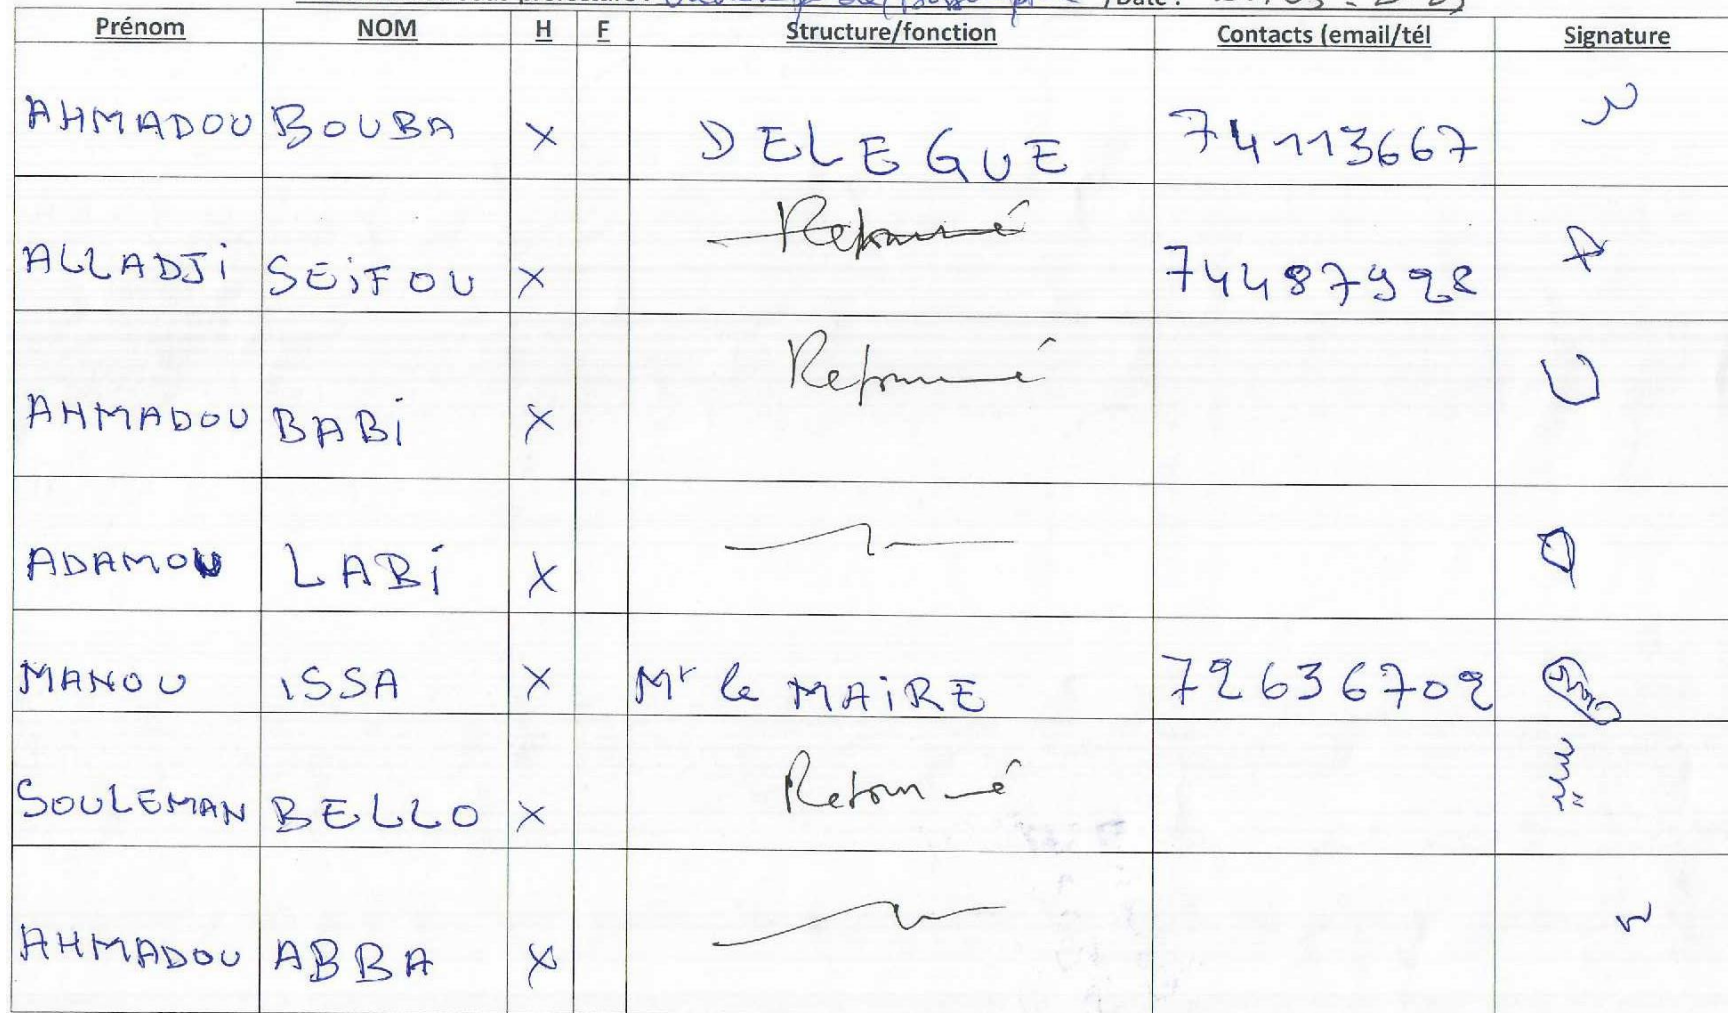 /Date :
Prénom NOM H F Structure/fonction Contacts (email/tél Signature
AHMADOU BOUBA X DELEGUE 74113667
ALLADJi SEiFOU X Retourné 74487928
AHMADOU BABi X Retourné
ADAMOU LABi X
MANOU iSSA X Mr le MAiRE 72636702
SOULEMAN BELLO X Retourné
AHMADOU ABBA X